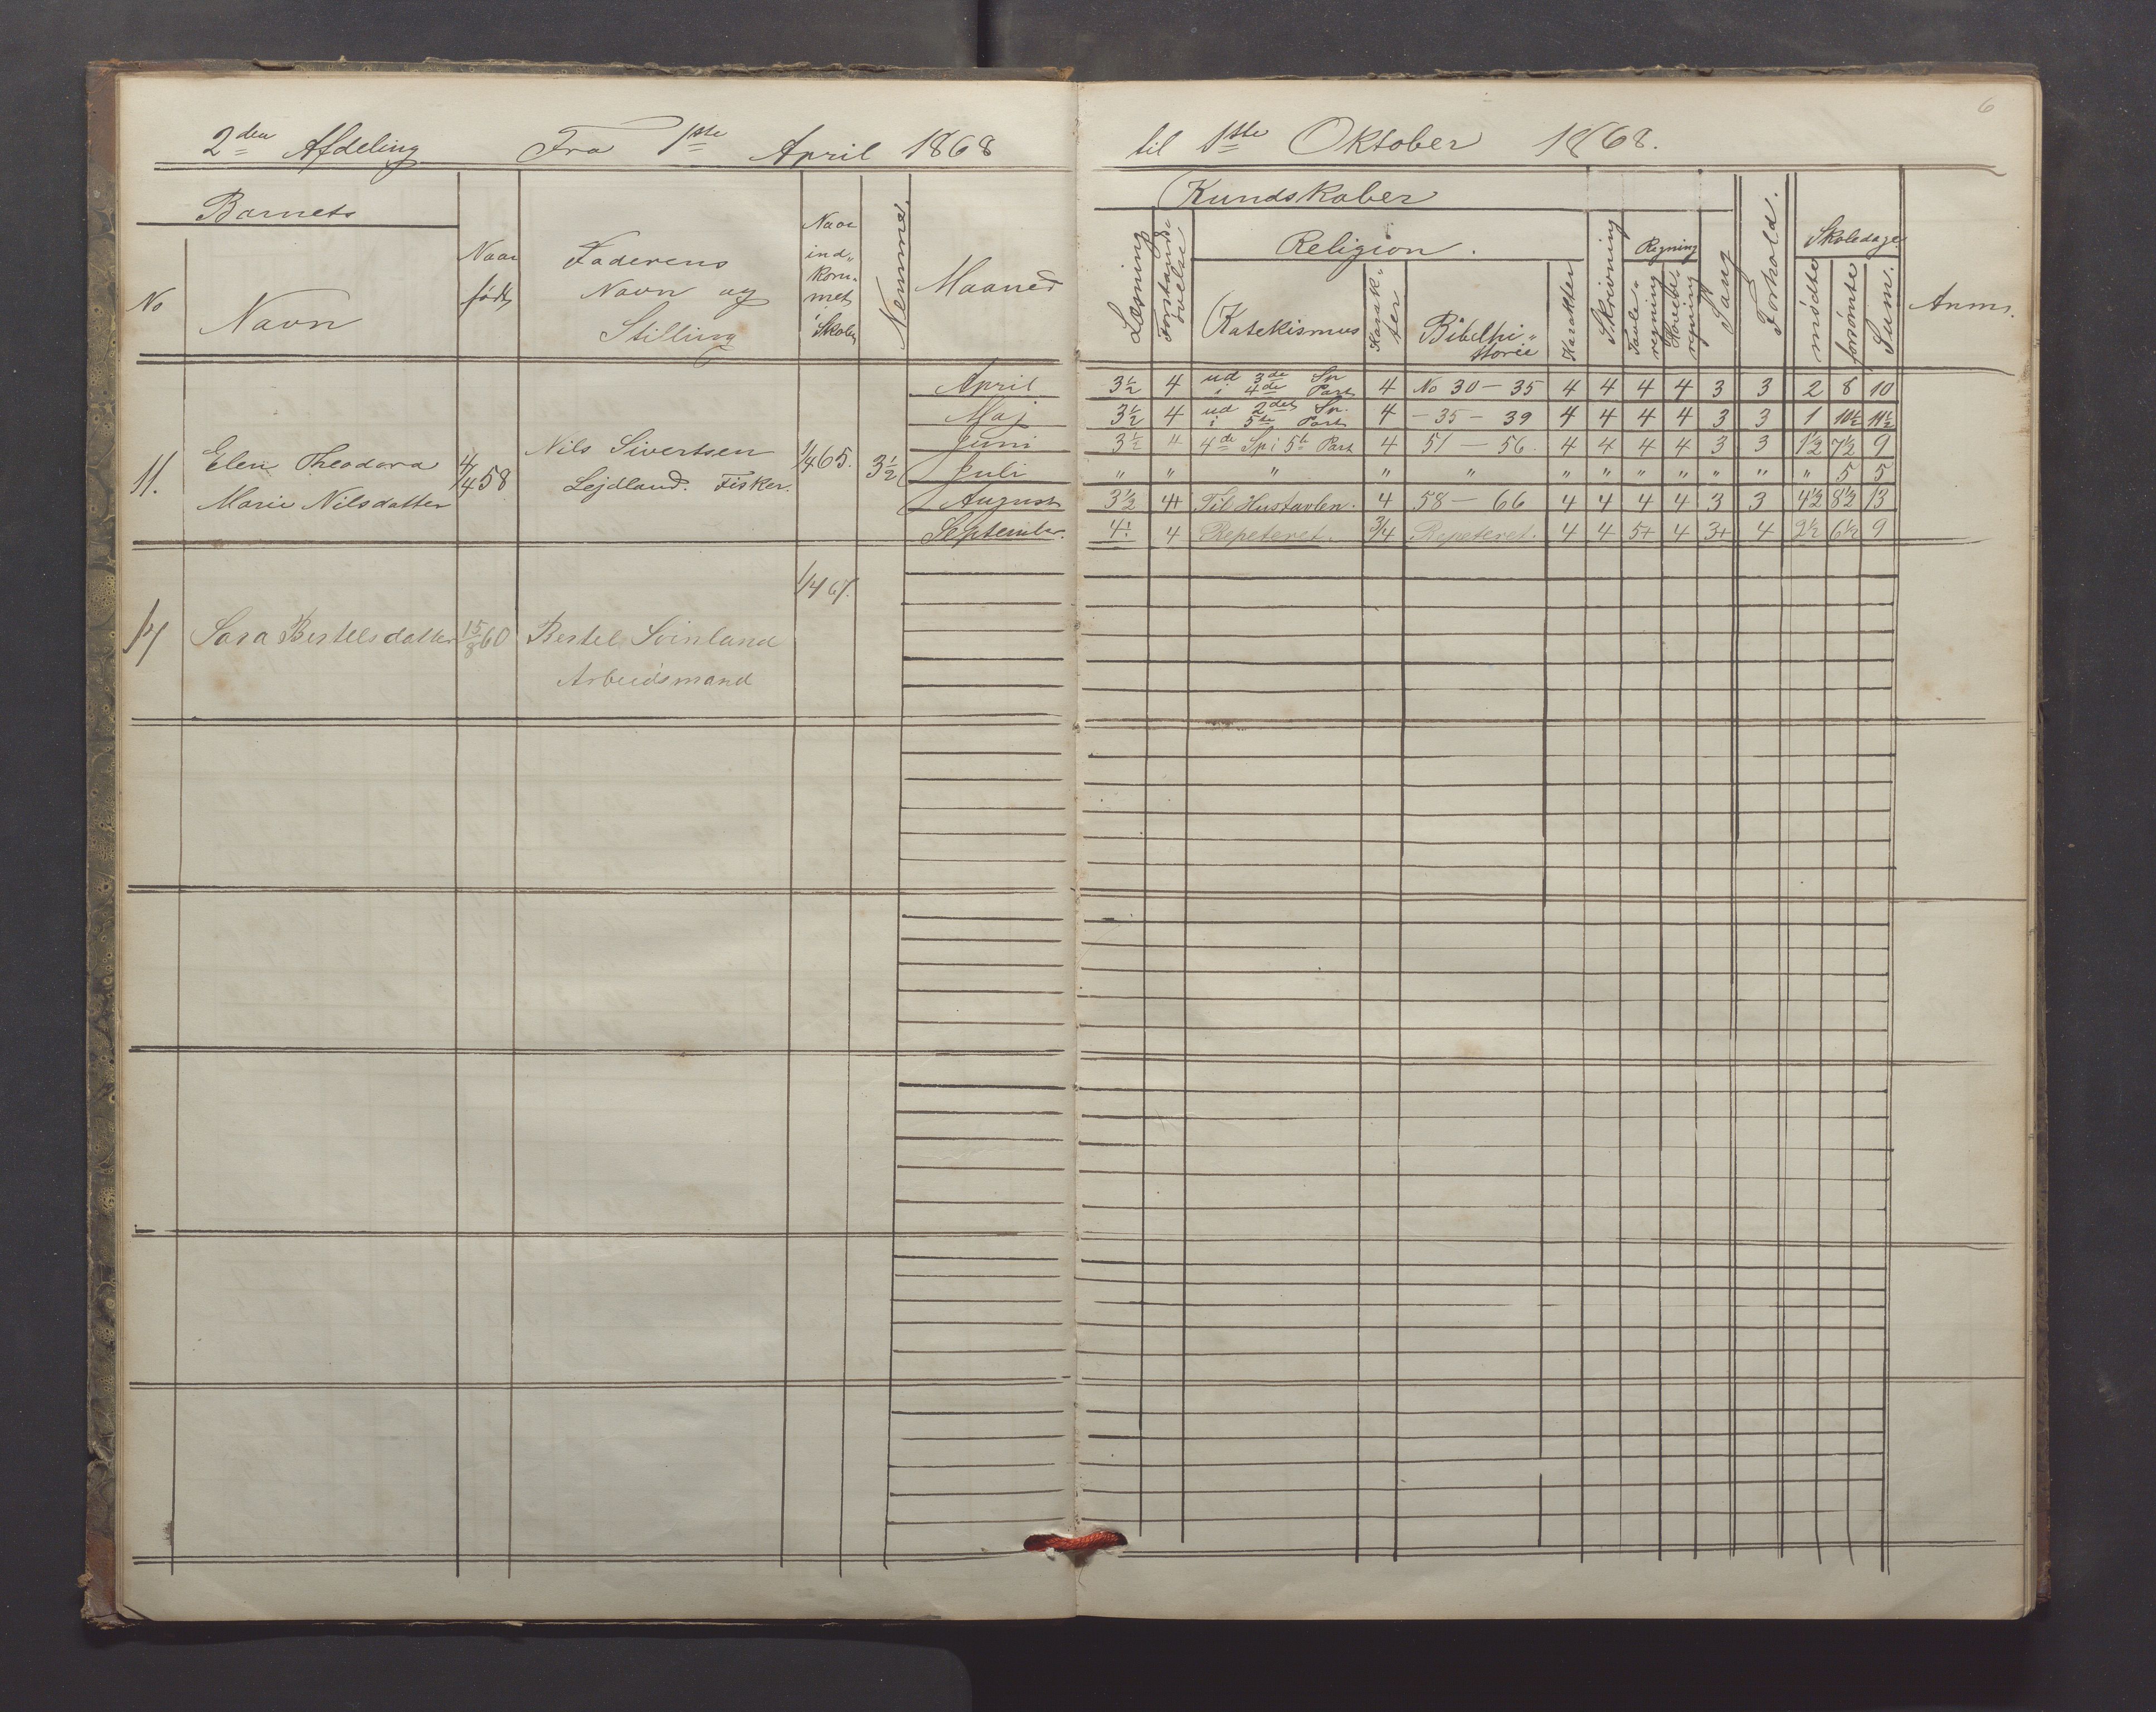 6
2den Afdeling Fra 1ste April 1868 til 1ste Oktober 1868.
Barnets
No
Navn
Naar født
Faderens
Navn og
Stilling
Naar
ind-
kom-
met
i Skolen
Nemme.
Maaned
Kundskaber
Læsning
Forstands
øvelse
Religion.
Katekismus
Karak-
ter
Bibelhi-
storie
Karakter
Skrivning
Regning
Tavle-
regning
Hoved-
regning
Sang
Forhold.
Skoledage
mødte
forsømte
Sum.
Anm.
11. Elen Theodora
Marie Nilsdatter
4/4 58
Nils Sivertsen
Lejdland. Fisker.
1/4 65. 3½
April 3½ 4 ud 3de Sp i 4de Part 4 No 30 - 35 4 4 4 4 3 3 2 8 10
Maj 3½ 4 ud 2det Sp. i 5te Part 4 - 35 - 39 4 4 4 4 3 3 1 10½ 11½
Juni 3½ " 4de Sp i 5te Part 4 51 - 56. 4 4 4 4 3 3 1½ 7½ 9
Juli " " " " " " " " " " " " 5 5
August 3½ 4+ Til Hustavlen. 4 58 - 66 4 4 4 4 3 3 4½ 8½ 13
September. 4÷ 4 Repeteret. 3/4 Repeteret. 4 4 5+ 4 3+ 4 2½ 6½ 9
1/4 67.
Sara Bertelsdatter 15/8 60 Bertel Svinland
Arbeidsmand